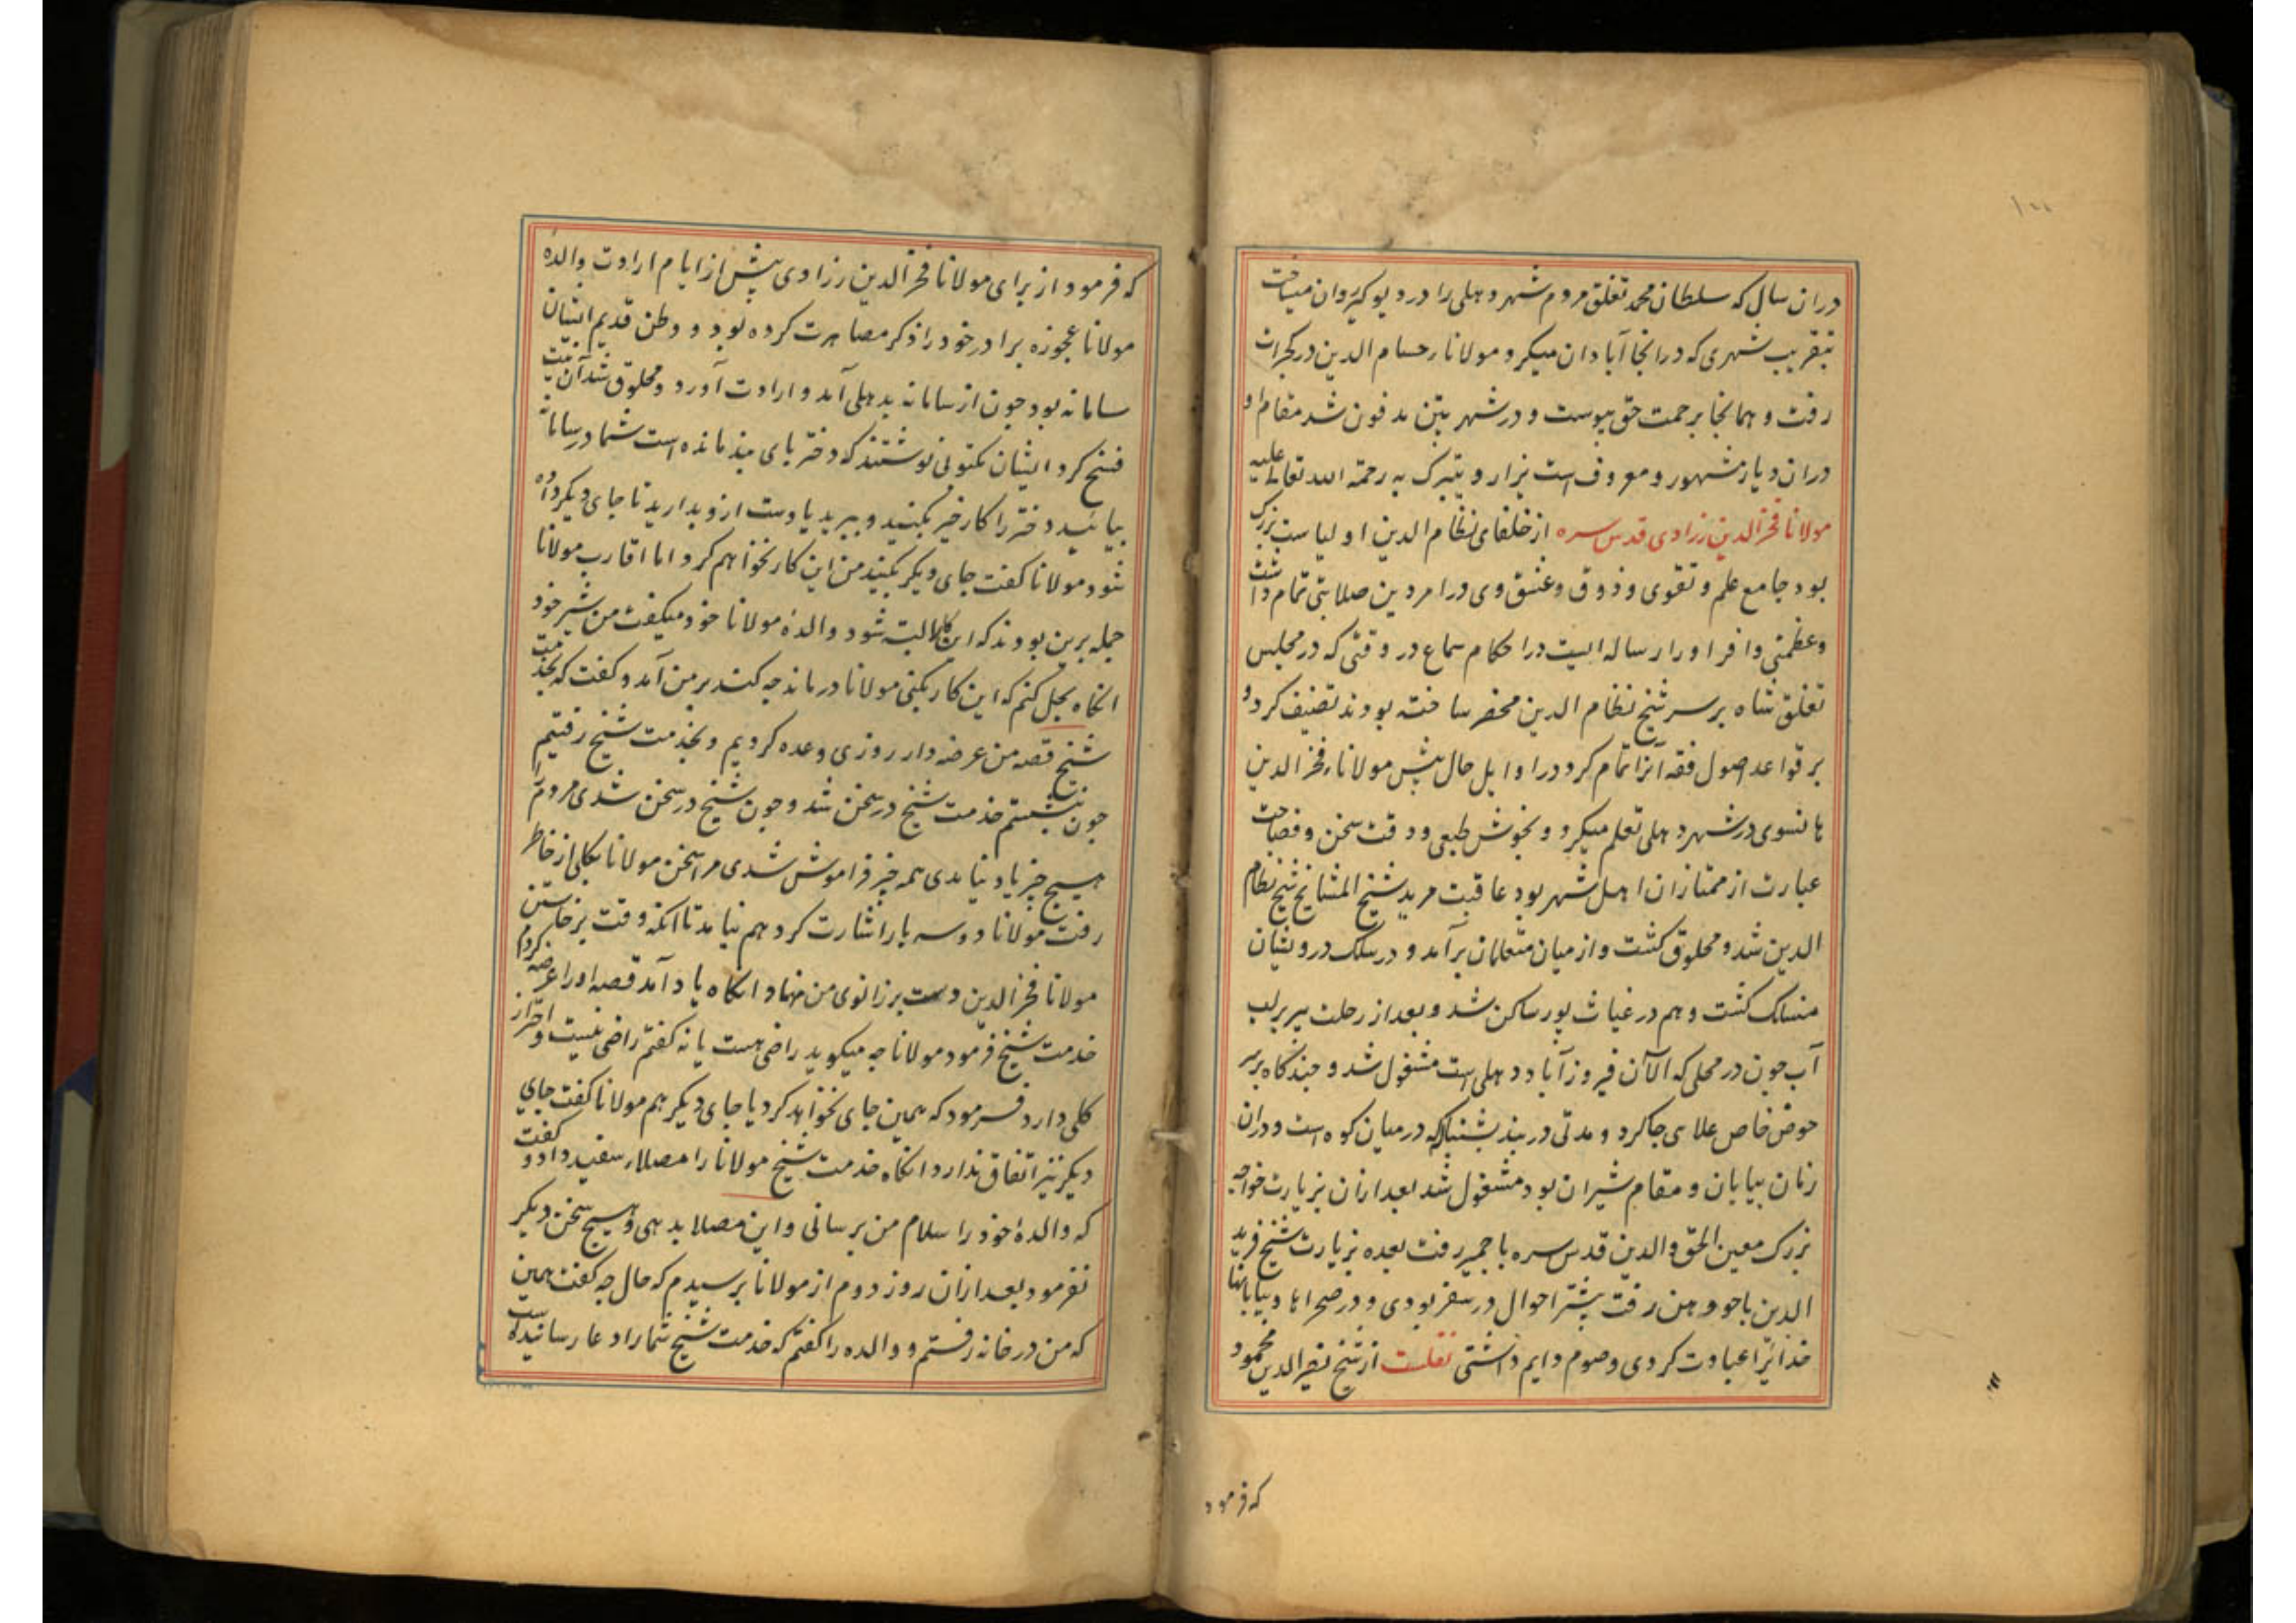 دران سال که سلطان محمد تغلق مردم شهر دهلی را در دیوکیر روان میساخت
بتقریب شهری که در انجا آبادان میکرد مولانا حسام الدین در کجرات
رفت و همانجا برحمت حق پیوست و در شهر پتن مدفون شد مقام او
دران دیار مشهور و معروف است یزار و یتبرک به رحمة الله تعالی علیه
مولانا فخر الدین زرادی قدس سره از خلفای نظام الدین اولیاست بزرک
بود جامع علم و تقوی و ذوق و عشق وی در امر دین صلابتی تمام داشت
و عظمتی وافر او را رساله ایست در احکام سماع در وقتی که در مجلس
تغلق شاه بر سر شیخ نظام الدین محضر ساخته بودند تصنیف کرد و
بر قواعد اصول فقه آنرا تمام کرد در اوایل حال پیش مولانا فخر الدین
هانسوی در شهر دهلی تعلم میکرد و بخوش طبعی و دقت سخن و فصاحت
عبارت از ممتازان اهل شهر بود عاقبت مرید شیخ المشایخ شیخ نظام
الدین شد و محلوق کشت و از میان متعلمان برآمد و در سلک درویشان
منسلک کشت و هم در غیاث پور ساکن شد و بعد از رحلت پیر بر لب
آب جون در محلی که الآن فیروز آباد دهلی است مشغول شد و چندکاه بر سر
حوض خاص علای جا کرد و مدتی در بند بشناله که در میان کوه است و دران
زمان بیابان و مقام شیران بود مشغول شد بعد ازان بزیارت خواجه
بزرک معین الحق والدین قدس سره باجمیر رفت بعده بزیارت شیخ فرید
الدین باجودهن رفت بیشتر احوال در سفر بودی و در صحراها و بیابانها
خدائرا عبادت کردی و صوم دایم داشتی نقلست از شیخ نصیر الدین محمود
که فرمود
که فرمود از برای مولانا فخر الدین زرادی پیش از ایام ارادت والده
مولانا عجوزه برادر خود را ذکر مصاهرت کرده بود و وطن قدیم ایشان
سامانه بود چون از سامانه بدهلی آمد و ارادت آورد و محلوق شد آن نیت
فسخ کرد ایشان مکتوبی نوشتند که دختر بای بند مانده است شما در سامانه
بیائید دختر را کار خیر بکنید و ببرید یا دست ازو بدارید تا جای دیکر داده
شود مولانا کفت جای دیکر بکنید من این کار نخواهم کرد اما اقارب مولانا
جمله برین بودند که این کار البته شود والدهٔ مولانا خود میکفت من شیر خود
انکاه بحل کنم که این کار بکنی مولانا درماند چه کند بر من آمد و کفت که بخدمت
شیخ قصه من عرضه دار روزی وعده کردیم و بخدمت شیخ رفتیم
چون نشستم خدمت شیخ در سخن شد و چون شیخ در سخن شدی مردم را
هیچ چیز یاد نیامدی همه چیز فراموش شدی مرا سخن مولانا بکلی از خاطر
رفت مولانا دو سه بار اشارت کرد هم نیامد تا انکه وقت برخاستن
مولانا فخر الدین دست بر زانوی من نهاد انکاه یاد آمد قصه او را عرضه کردم
خدمت شیخ فرمود مولانا چه میکوید راضی هست یا نه کفتم راضی نیست و احتراز
کلی دارد فرمود که همین جای نخواهد کرد یا جای دیکر هم مولانا کفت جای
دیکر نیز اتفاق ندارد انکاه خدمت شیخ مولانا را مصلا سفید داد و کفت
که والدهٔ خود را سلام من برسانی و این مصلا بدهی و هیچ سخن دیکر
نفرمود بعد ازان روز دوم از مولانا پرسیدم که حال چه کفت همین
که من در خانه رفتم و والده را کفتم که خدمت شیخ شما را دعا رسانیده است